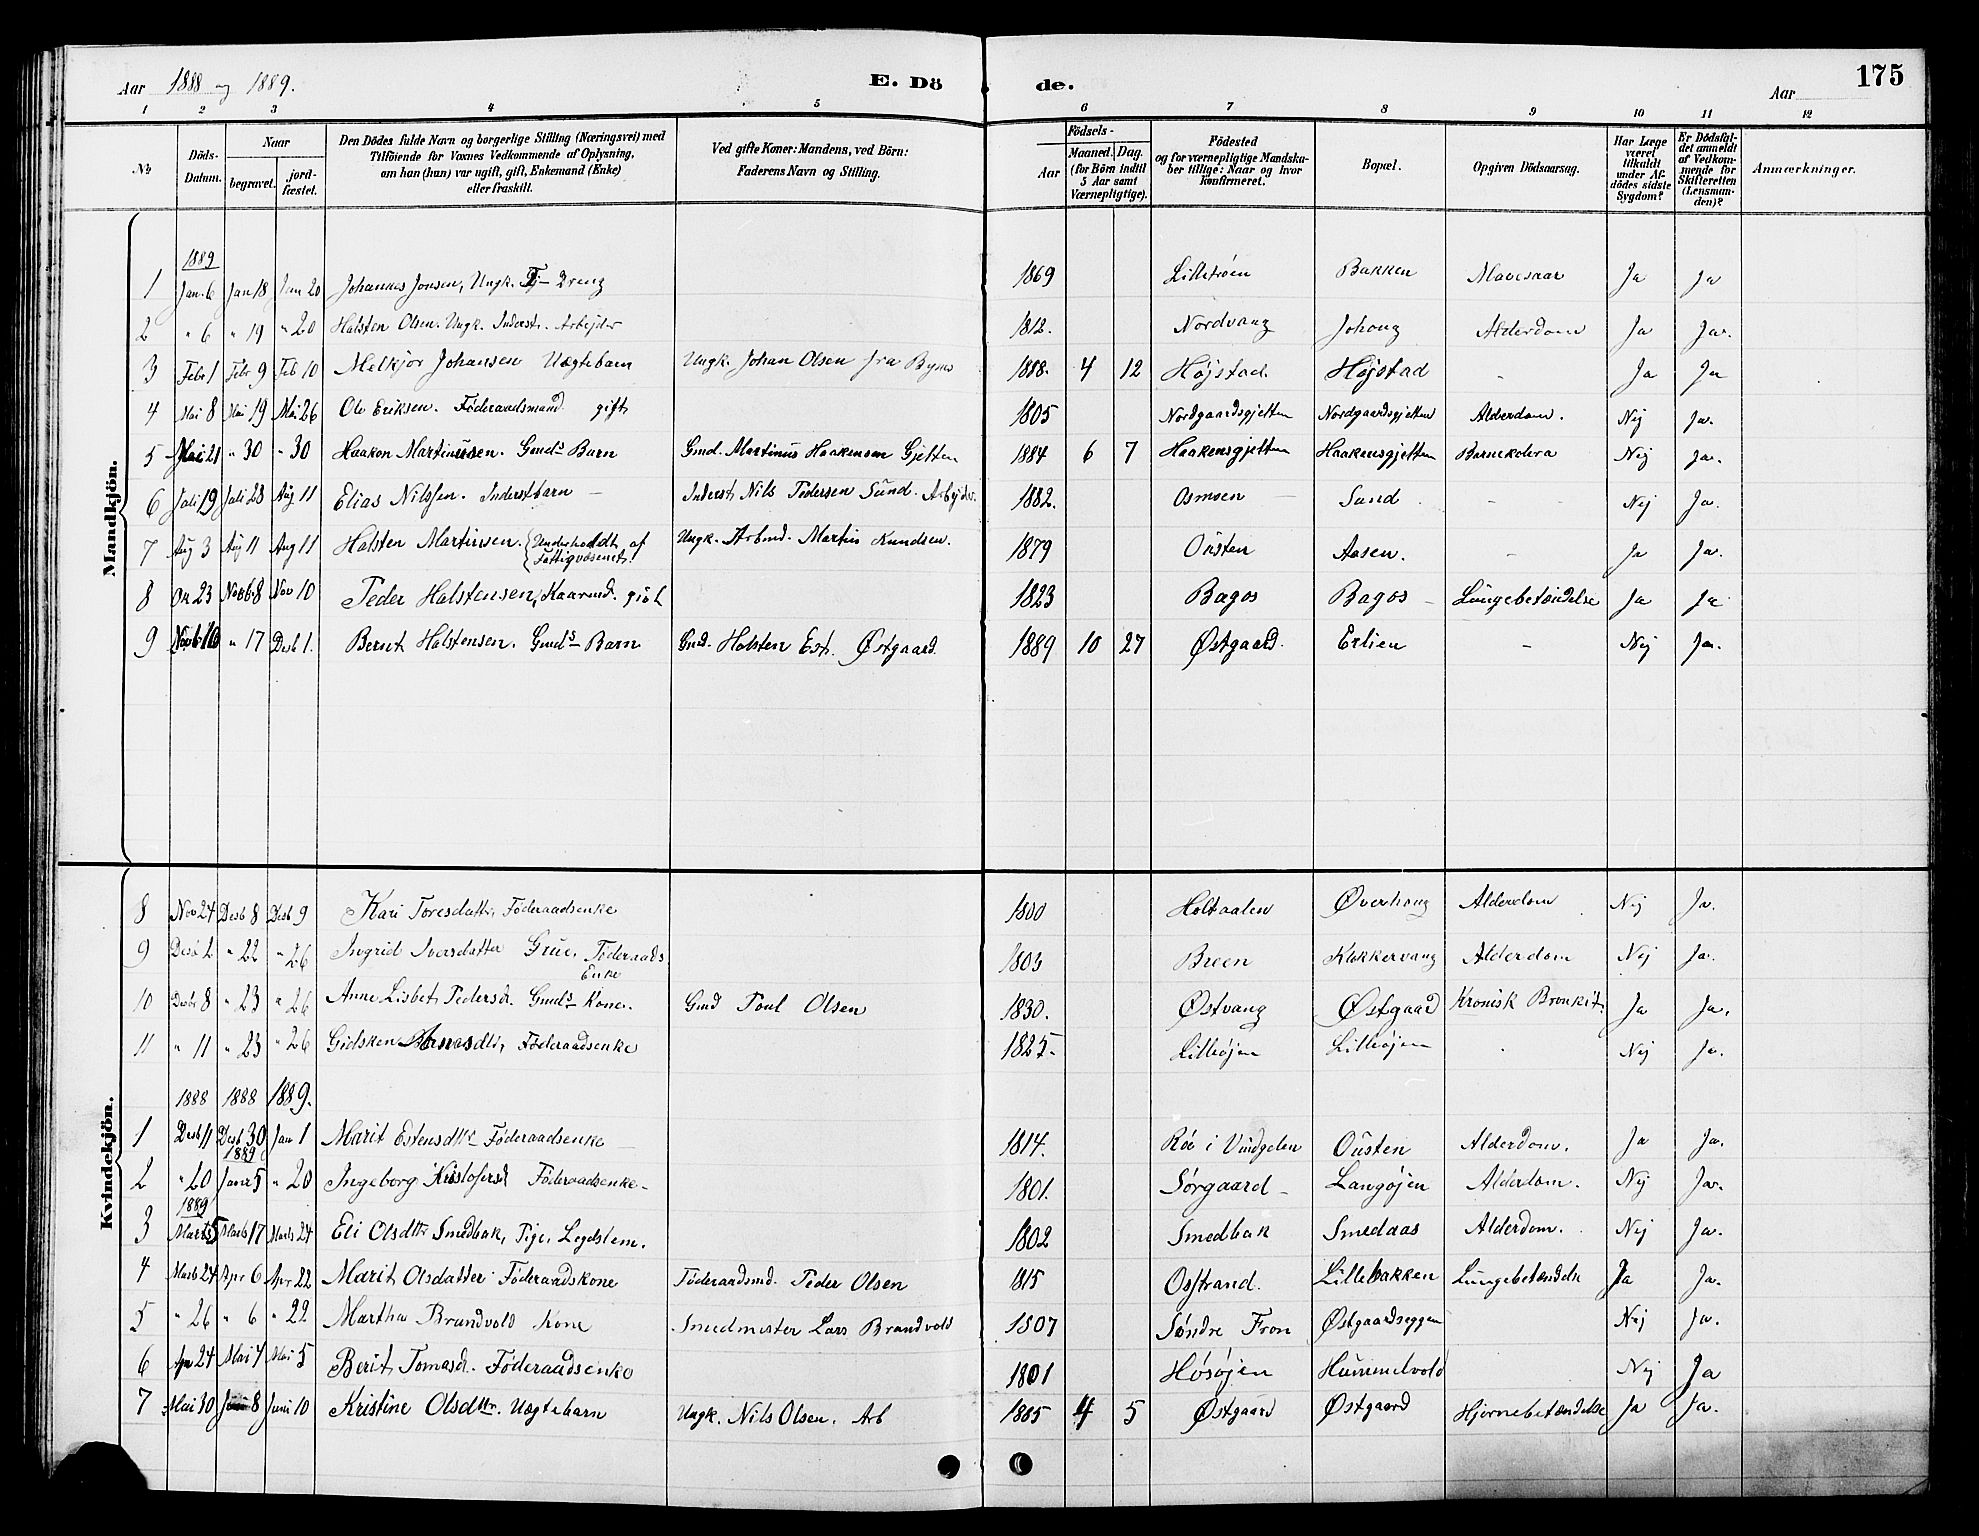 Aar 1888 og 1889.
E. Dö de.
Aar
175
1 2 3 4 5 6 7 8 9 10 11 12
No
Döds-Datum.
Naar
begravet. jordfæstet.
Den Dödes fulde Navn og borgerlige Stilling (Næringsvei) med
Tilföiende for Voxnes Vedkommende af Oplysning,
om han (hun) var ugift, gift, Enkemand (Enke)
eller fraskilt.
Ved gifte Koner: Mandens, ved Börn:
Faderens Navn og Stilling.
Födsels-
Aar Maaned. Dag.
(for Börn indtil 5 Aar samt Værnepligtige).
Födested
og for værnepligtige Mandskaber tillige: Naar og hvor
Konfirmeret.
Bopæl.
Opgiven Dödsaarsag.
Har Læge været tilkaldt under Afdödes sidste Sygdom?
Er Dödsfaldet anmeldt af Vedkommende for Skifteretten (Lensmanden)?
Anmærkninger.
Mandkjön.
1889
1 Jan. 6 Jan 18 Jan 20 Johannes Jonsen, Ungk. Tj- Dreng 1869 Lillstrøen Bakken Mavesaar Ja Ja
2 " 6 " 19 " 20 Halsten Olsen. Ungk. Inderst. Arbejder 1812. Nordvang Johang Alderdom Ja Ja.
3 Febr 1 Febr 9 Feb 10 Melkjor Johansen Uægtebarn Ungk. Johan Olsen fra Bynes 1888. 4 12 Højstad. Højstad - Ja Ja
4 Mai 8 Mai 19 Mai 26 Ole Eriksen. Föderaadsmand gift 1805 Nordgaardsgjetten Nordgaardsgjetten Alderdom. Nej Ja.
5 Mai 21 " 30 " 30 Haakon Martinusen. Gmds Barn Gmd. Martinus Haakensen Gjetten 1884 6 7 Haakensgjetten Haakensgjetten Barnekolera Nej Ja.
6 Juli 19 Juli 28 Aug 11 Elias Nilssen. Inderstbarn - Inderst Nils Pedersen Sund. Arbejder 1882. Osmoen Sund - Nej Ja.
7 Aug 3 Aug 11 Aug 11 Halsten Martinsen. {Underholdt af Fattigvæsenet. Ungk. Arbmd. Martin Knudsen. 1879 Ousten Aasen. - Ja Ja.
8 Ok 23 Novb. 8 Nov 10 Peder Halstensen, Kaarmd. gift 1823 Bagos Bagos - Lungebetændelse Ja Ja
9 Novb 10 " 17 Desb 1. Bernt Halstensen. Gmds Barn Gmd. Halsten Est. Østgaard. 1889 10 27 Østgaard. Erlien - Nej Ja.
Kvindekjön.
8 Nov 24 Desb 8 Desb 9 Kari Toresdattr, Föderaadsenke 1800 Holtaalen Øverhaug Alderdom Nej Ja.
9 Desb 2 " 22 " 26 Ingrid Iversdatter Grue, Föderaads Enke 1803 Breen Klokkervang Alderdom Nej Ja.
10 Desbr 8 " 23 " 26 Anne Lisbet Pedersd. Gmds Kone. Gmd Poul Olsen 1830. Østvang Østgaard Kronisk Bronkit. Ja Ja.
11 " 11 " 23 " 26 Gidsken Arnesdtr, Föderaadsenke 1825. Lilleøjen Lilleøjen . Nej Ja.
1888 1888 1889.
1 Desb 11 Desb 30 Jan 1 Marit Estensdtr Föderaadsenke 1814. Røe i Vingelen Ousten Alderdom. Ja Ja.
1889
2 " 20 Janr 5 " 20 Ingeborg Kristofersd Föderaadsenke- 1801. Sørgaard - Langøjen Alderdom. Nej Ja.
1889
3 Marts 5 Marts 17 Marts 24 Eli Olsdtr Smedbak, Pige, Legdslem. 1802 Smedbak Smedaas Alderdom. Nej Ja.
4 Marts 24 Apr 6 Apr 22 Marit Olsdatter Föderaadskone Föderaadsmd. Peder Olsen 1815 Osstrand. Lillebakken Lungebetændelse Ja Ja.
5 " 26 " 6 " 22 Martha Brandvold Kone Smedmester Lars Brandvold 1807 Söndre Fron Østgaardseggen Nej Ja.
6 Apr 24 Mai 4 Mai 5 Berit Tomasd. Föderaadsenke 1801 Høsøjen Hummelvold Nej Ja
7 Mai 30 Juni 8 Juni 10 Kristine Olsdtr. Uægtebarn Ungk. Nils Olsen. Arb 1885 4 5 Østgaard Østgaard Hjernebetændelse Ja Ja.